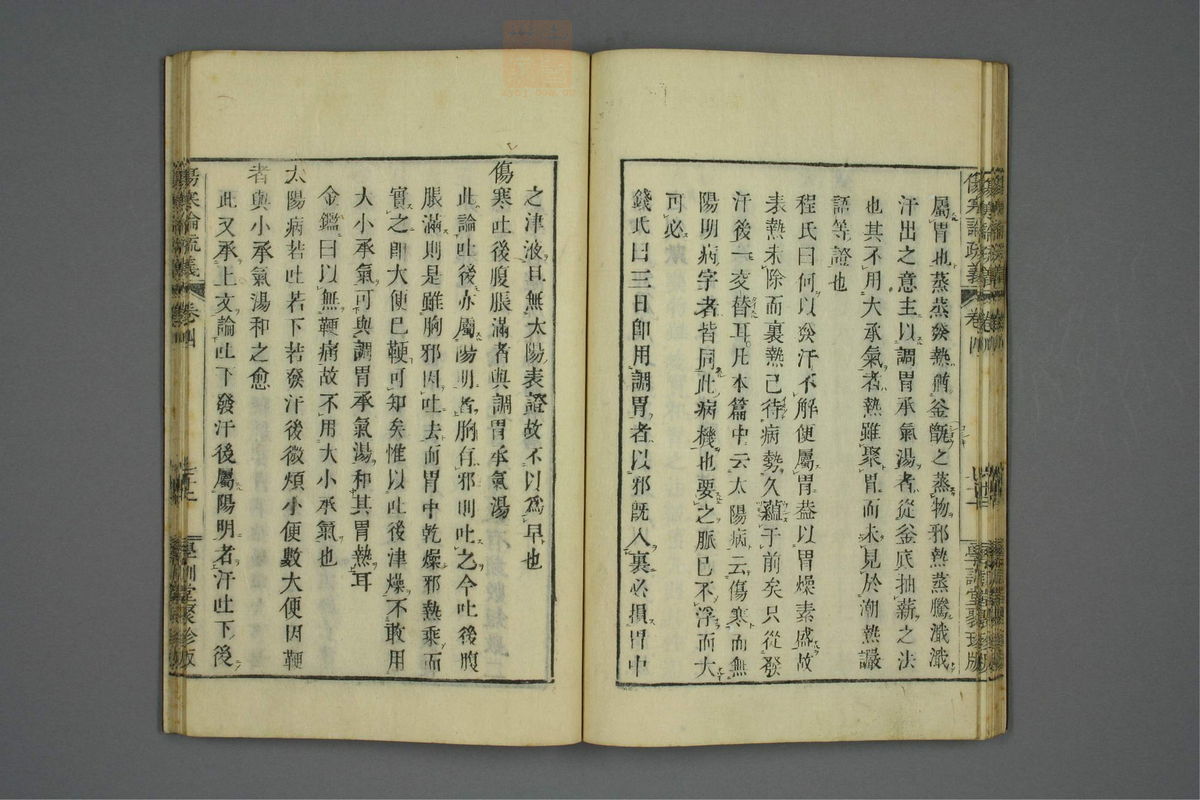 傷寒論疏義 卷四 學訓堂聚珍版
屬胃也蒸蒸發熱猶釜甑之蒸物邪熱蒸騰濈濈
汗出之意主以調胃承氣湯者從釜底抽薪之法
也其不用大承氣者熱雖聚胃而未見於潮熱讝
語等證也
程氏曰何以發汗不解便屬胃葢以胃燥素盛故
表熱未除而裏熱已待病勢久蘊于前矣只從發
汗後一交替耳凡本篇中云太陽病云傷寒而無
陽明病字者皆同此病機也要之脈已不浮而大
可必
錢氏曰三日卽用調胃者以邪旣入裏必損胃中
之津液且無太陽表證故不以爲早也
傷寒吐後腹脹滿者與調胃承氣湯
此論吐後亦屬陽明者胸有邪則吐之今吐後腹
脹滿則是雖胸邪因吐去而胃中乾燥邪熱乘而
實之卽大便已鞕可知矣惟以吐後津燥不敢用
大小承氣可與調胃承氣湯和其胃熱耳
金鑑曰以無鞕痛故不用大小承氣也
太陽病若吐若下若發汗後微煩小便數大便因鞕
者與小承氣湯和之愈
此又承上文論吐下發汗後屬陽明者汗吐下後
傷寒論疏義 卷四 學訓堂聚珍版